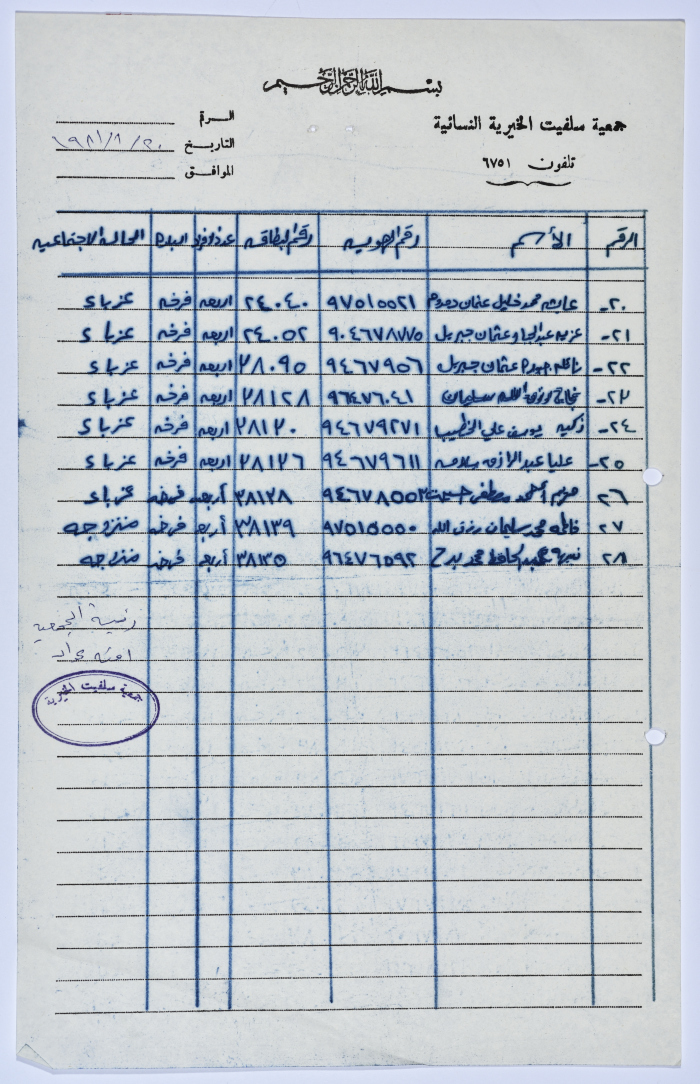 بسم الله الرحمن الرحيم
جمعية سلفيت الخيرية النسائية
تلفون ٦٧٥١
الرقم
التاريخ ٢٠/٨/١٩٨١
الموافق
الرقم الأسم رقم الهويه رقم البطاقه عدد افراد البلده الحاله الاجتماعيه
٢٠- محمد خليل عثمان ٩٧٥١٥٥٢١ ٢٤٠٤٠ اربعه فرخه عزباء
٢١- عثمان جبريل ٩٠٤٦٧٨٧٧٥ ٢٤٠٥٢ اربعه فرخه عزباء
٢٢- نائله عثمان جبريل ٩٤٦٧٩٥٦ ٣٨٠٩٥ اربعه فرخه عزباء
٢٣- نجاح رزق الله سليمان ٩٦٤٧٦٠٤١ ٣٨١٢٨ اربعه فرخه عزباء
٢٤- زكيه يوسف علي الخطيب ٩٤٦٧٩٢٧١ ٣٨١٢٠ اربعه فرخه عزباء
٢٥- عليا عبد الرازق سلامه ٩٤٦٧٩٦١١ ٣٨١٢٦ اربعه فرخه عزباء
٢٦ مريم أحمد مصطفى حسين ٩٤٦٧٨٥٥٢ ٣٨١٢٨ أربعه فرخه عزباء
٢٧ فاطمه محمد سليمان رزق الله ٩٧٥١٥٥٥٠ ٣٨١٣٩ أربعه فرخه متزوجه
٢٨ عبد الحافظ محمد ٩٦٤٧٦٥٩٢ ٣٨١٣٥ أربعه فرخه متزوجه
رئيسة الجمعيه
امنه
جمعية سلفيت الخيرية